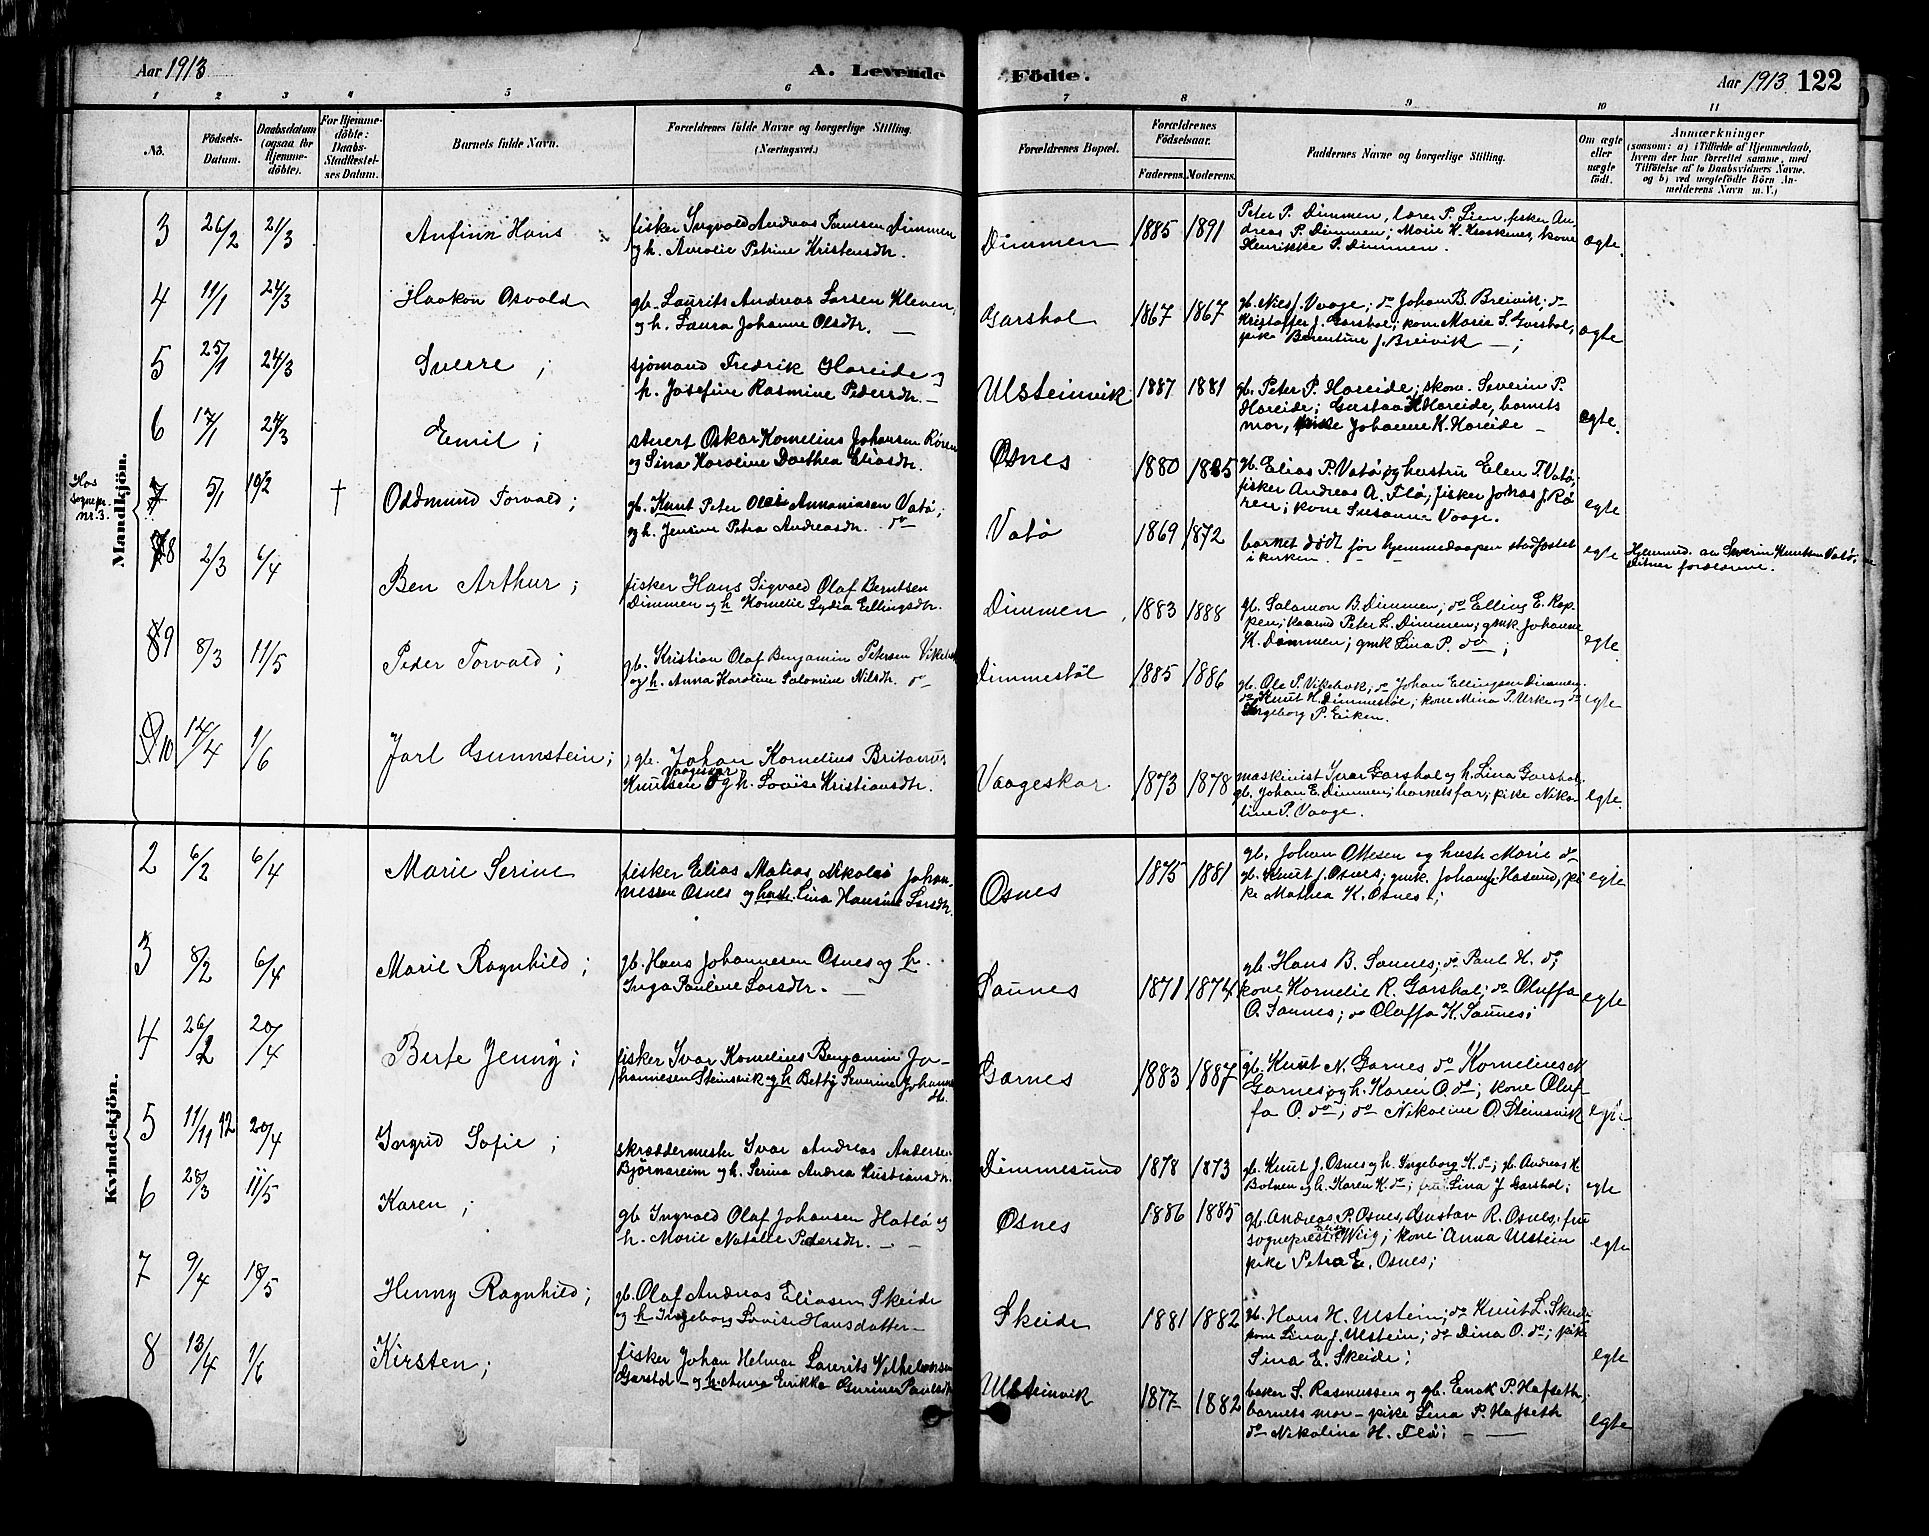 Aar 1913 A. Levende Födte. Aar 1913 122
1 2 3 4 5 6 7 8 9 10 11
No. Födsels-Datum. Daabsdatum (ogsaa for Hjemmedöbte). For Hjemmedöbte: Daabs-Stadfæstelses Datum. Barnets fulde Navn. Forældrenes fulde Navne og borgerlige Stilling. (Næringsvei.) Forældrenes Bopæl. Forældrenes Födselsaar. Faderens. Moderens. Faddernes Navne og borgerlige Stilling. Om ægte eller uægte födt. Anmærkninger (saasom: a) i Tilfælde af Hjemmedaab, hvem der har forrettet samme, med Tilföielse af to Daabsvidners Navne. og b) ved uægtefödte Börn Anmelderens Navn m. V.)
Mandkjön.
3 26/2 21/3 Anfinn Hans fisker Ingvald Andreas Dimmen
og h. Petrine Kristensdtr. Dimmen 1885 1891 Peter P. Dimmen, P. Lien, fisker An-
dreas P. Dimmen; Marie K. kone
Henrikke P. Dimmen. ægte
4 11/1 24/3 Haakon Osvald gb. Laurits Andreas Larsen Kleven,
og h. Laura Johanne Olsdtr. — Garshol 1867 1867 gb. Nils J. Vaage; do Johan B. Breivik; do
Kristoffer J. Garshol; kone Marie S. Garshol,
pike Berentine J. Breivik —; ægte
5 25/1 24/3 Sverre; sjömand Fredrik Hareide og
h. Josefine Rasmine Pedersdtr. — Ulsteinvik 1887 1881 gb. Peter P. Hareide; skom. Severin P.
Hareide; Gustaa K. Hareide, barnets
mor, pike Johanne K. Hareide — ægte.
6 17/1 24/3 Emil; stuert Oskar Kornelius Johansen Rören
og Sina Karoline Dorthea Eliasdtr. Osnes 1880 1885 gb. Elias P. Vatö og hustru Elen T. Vatö;
fisker Andreas A. Flö; fisker Johas J. Rö
ren; kone Susanne Vaage. egte
Hos
sognepr.
nr. 3.
7 5/1 10/2 † Oddmund Torvald; gb. Knut Peter Olai Annaniasen Vatö;
og h. Jensine Petra Andreasdtr. do Vatö 1869 1872 barnet dödt för hjemmedaapen stadfæstet
i kirken. egte Hjemmed. av Severin Knutsen Vatö,
Vitner forældrene.
8 2/3 6/4 Ben Arthur; fisker Hans Sigvald Olaf Berntsen
Dimmen og h Kornelie Lydia Ellingsdtr. Dimmen 1883 1888 gb. Salamon B. Dimmen; do Elling E. Rep-
pen; Peter L. Dimmen; gmk. Johanne
K. Dimmen; gmk Lina P. do; egte
9 8/3 11/5 Peder Torvald; gb. Kristian Olaf Benjamin Petersen
og h. Anna Karoline Salomine Nilsdtr. do Dimmestöl 1885 1886 gb. Ole P. do Johan Ellingsen Dimmen;
do Knut H. Dimmestöl; kone Mina P. Urke og do
Ingeborg P. Eiken. egte
10 14/4 1/6 Jarl Gunnstein; gb. Johan Kornelius Britanus
Knutsen Vaageskar og h. Lovise Kristiansdtr. Vaageskar 1873 1878 maskinist Ivar Garshol og h. Lina Garshol
gb. Johan E. Dimmen; barnets far; pike Niko-
line P. Vaage. egte.
Kvindekjön.
2 6/2 6/4 Marie Serine fisker Elias Matias Nikolai Johan-
nessen Osnes og hustr. Lina Hansine Larsdtr. Osnes 1875 1881 gb. Johan Ottesen og hustr Marie do
gb. Knut J. Osnes; gmk. Johan Hasund, pi
ke Mathea K. Osnes; egte
3 8/2 6/4 Marie Ragnhild; gb. Hans Johannesen Osnes og h.
Inga Pauline Larsdtr. — Saunes 1871 1874 gb. Hans B. Saunes; do Paul H. do;
kone Kornelie R. Garshol; do Oluffa
O. Saunes; do Oluffa K. Saunes; egte
4 26/2 20/4 Berte Jenny; fisker Ivar Kornelius Benjamin Jo-
hannesen Steinsvik og h Betty Severine Johannes
dtr. Garnes 1883 1887 gb. Knut N. Garnes do Kornelius N
Garnes og h. Karen O. do; kone Oluf-
fa O. do; do Nikoline O. Steinsvik egte
5 11/11 12 20/4 Ingrid Sofie; skræddermester Ivar Andreas Andersen
Björnareim og h. Serina Andrea Kristiansdtr. Dimmesund 1878 1873 gb. Knut J. Osnes og h. Ingeborg K. do; gb. Andreas K
Botnen og h. Karen K. do; frk. Lina J Garshol; egte
6 28/3 11/5 Karen; gb Ingvald Olaf Johansen Hatlö og
h. Marie Natalie Pedersdtr. — Osnes 1886 1885 gb. Andreas P. Osnes, Gustav R. Osnes, fru
sogneprest Wiig; kone Anna Ulstein
pike Petra E. Osnes; egte
7 9/4 18/5 Henny Ragnhild; gb. Olaf Andreas Eliasen Skeide
og h Ingeborg Lovise Hansdatter — Skeide 1881 1882 gb. Hans H. Ulstein; do Knut L. Skeide
kone Lina J. Ulstein; do Dina O. do; pike
Sina E. Skeide; egte
8 13/4 1/6 Kirsten; fisker Johan Helmar Laurits Vilhelmsen
Garshol — og h. Anna Erikka Gurine Paulsdtr Ulsteinvik 1877 1882 baker S. Rasmussen og gb. Enok P. Hafseth,
barnets mor — pike Lina P. Hafseth
do Nikolina H. Flö; — egte